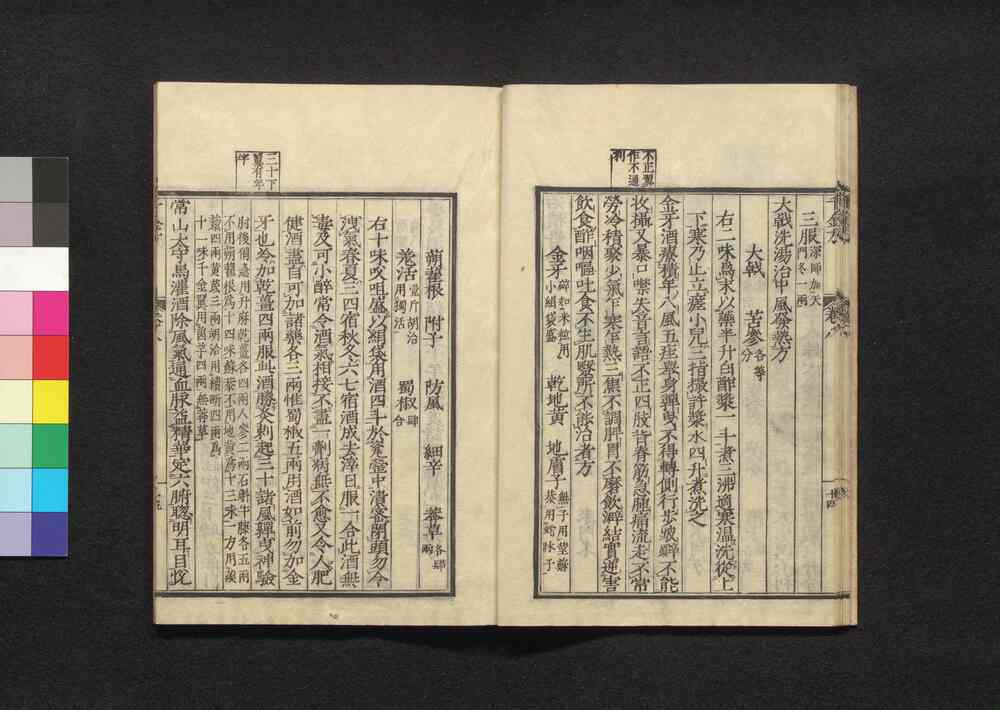 不正翼
作不通
利
三服 深師加天門冬一兩
大戟洗湯治中風發熱方
大戟 苦參 各等分
右二味為末以藥半升白酢漿一斗煮三沸適寒溫洗從上
下寒乃止立瘥小兒三指撮許漿水四升煮洗之
金牙酒療積年八風五疰舉身嚲曳不得轉側行步跛躄不能
收攝又暴口噤失音言語不正四肢背脊筋急腫痛流走不常
勞冷積聚少氣乍寒乍熱三焦不調脾胃不磨飲澼結實逆害
飲食酢咽嘔吐食不生肌醫所不能治者方
金牙 碎如米粒用小絹袋盛 乾地黃 地膚子 無子用莖蘇恭用蛇牀子
三十下
翼有年
字
蒴藋根 附子 防風 細辛 莽草 各肆兩
羌活 壹斤胡洽用獨活 蜀椒 肆合
右十味㕮咀盛以絹袋用酒四斗於瓷甖中漬密閉頭勿令
洩氣春夏三四宿秋冬六七宿酒成去滓日服一合此酒無
毒及可小醉常令酒氣相接不盡一劑病無不愈又令人肥
健酒盡自可加諸藥各三兩惟蜀椒五兩用酒如前勿加金
牙也冷加乾薑四兩服此酒勝灸刺起三十諸風嚲曳神驗
肘後備急用升麻乾薑各四兩人參二兩石斛牛膝各五兩
不用蒴藋根為十四味蘇恭不用地黃為十三味一方用蒺
蔾四兩黃蓍三兩胡洽用續斷四兩為
十一味千金翼用茵芋四兩無莽草
常山太守馬灌酒除風氣通血脉益精華定六腑聰明耳目悅